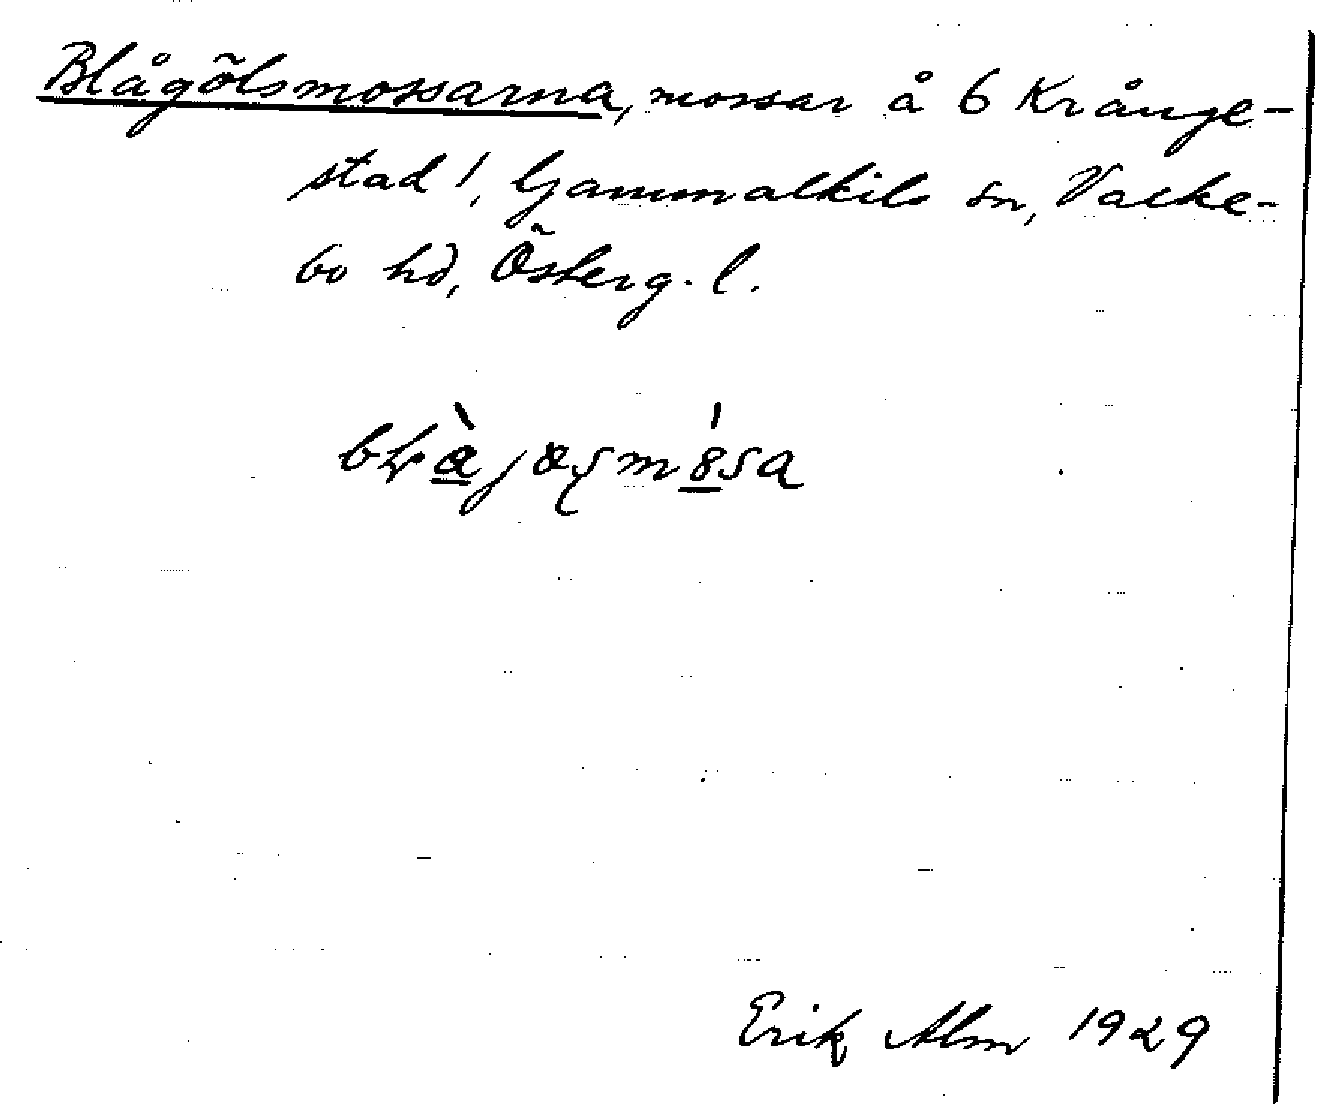 Blågölsmossarna, mossar å 6 Krånge-
stad!, Gammalkils sn, Valke-
bo hd, Österg. l.
Erik Alm 1929